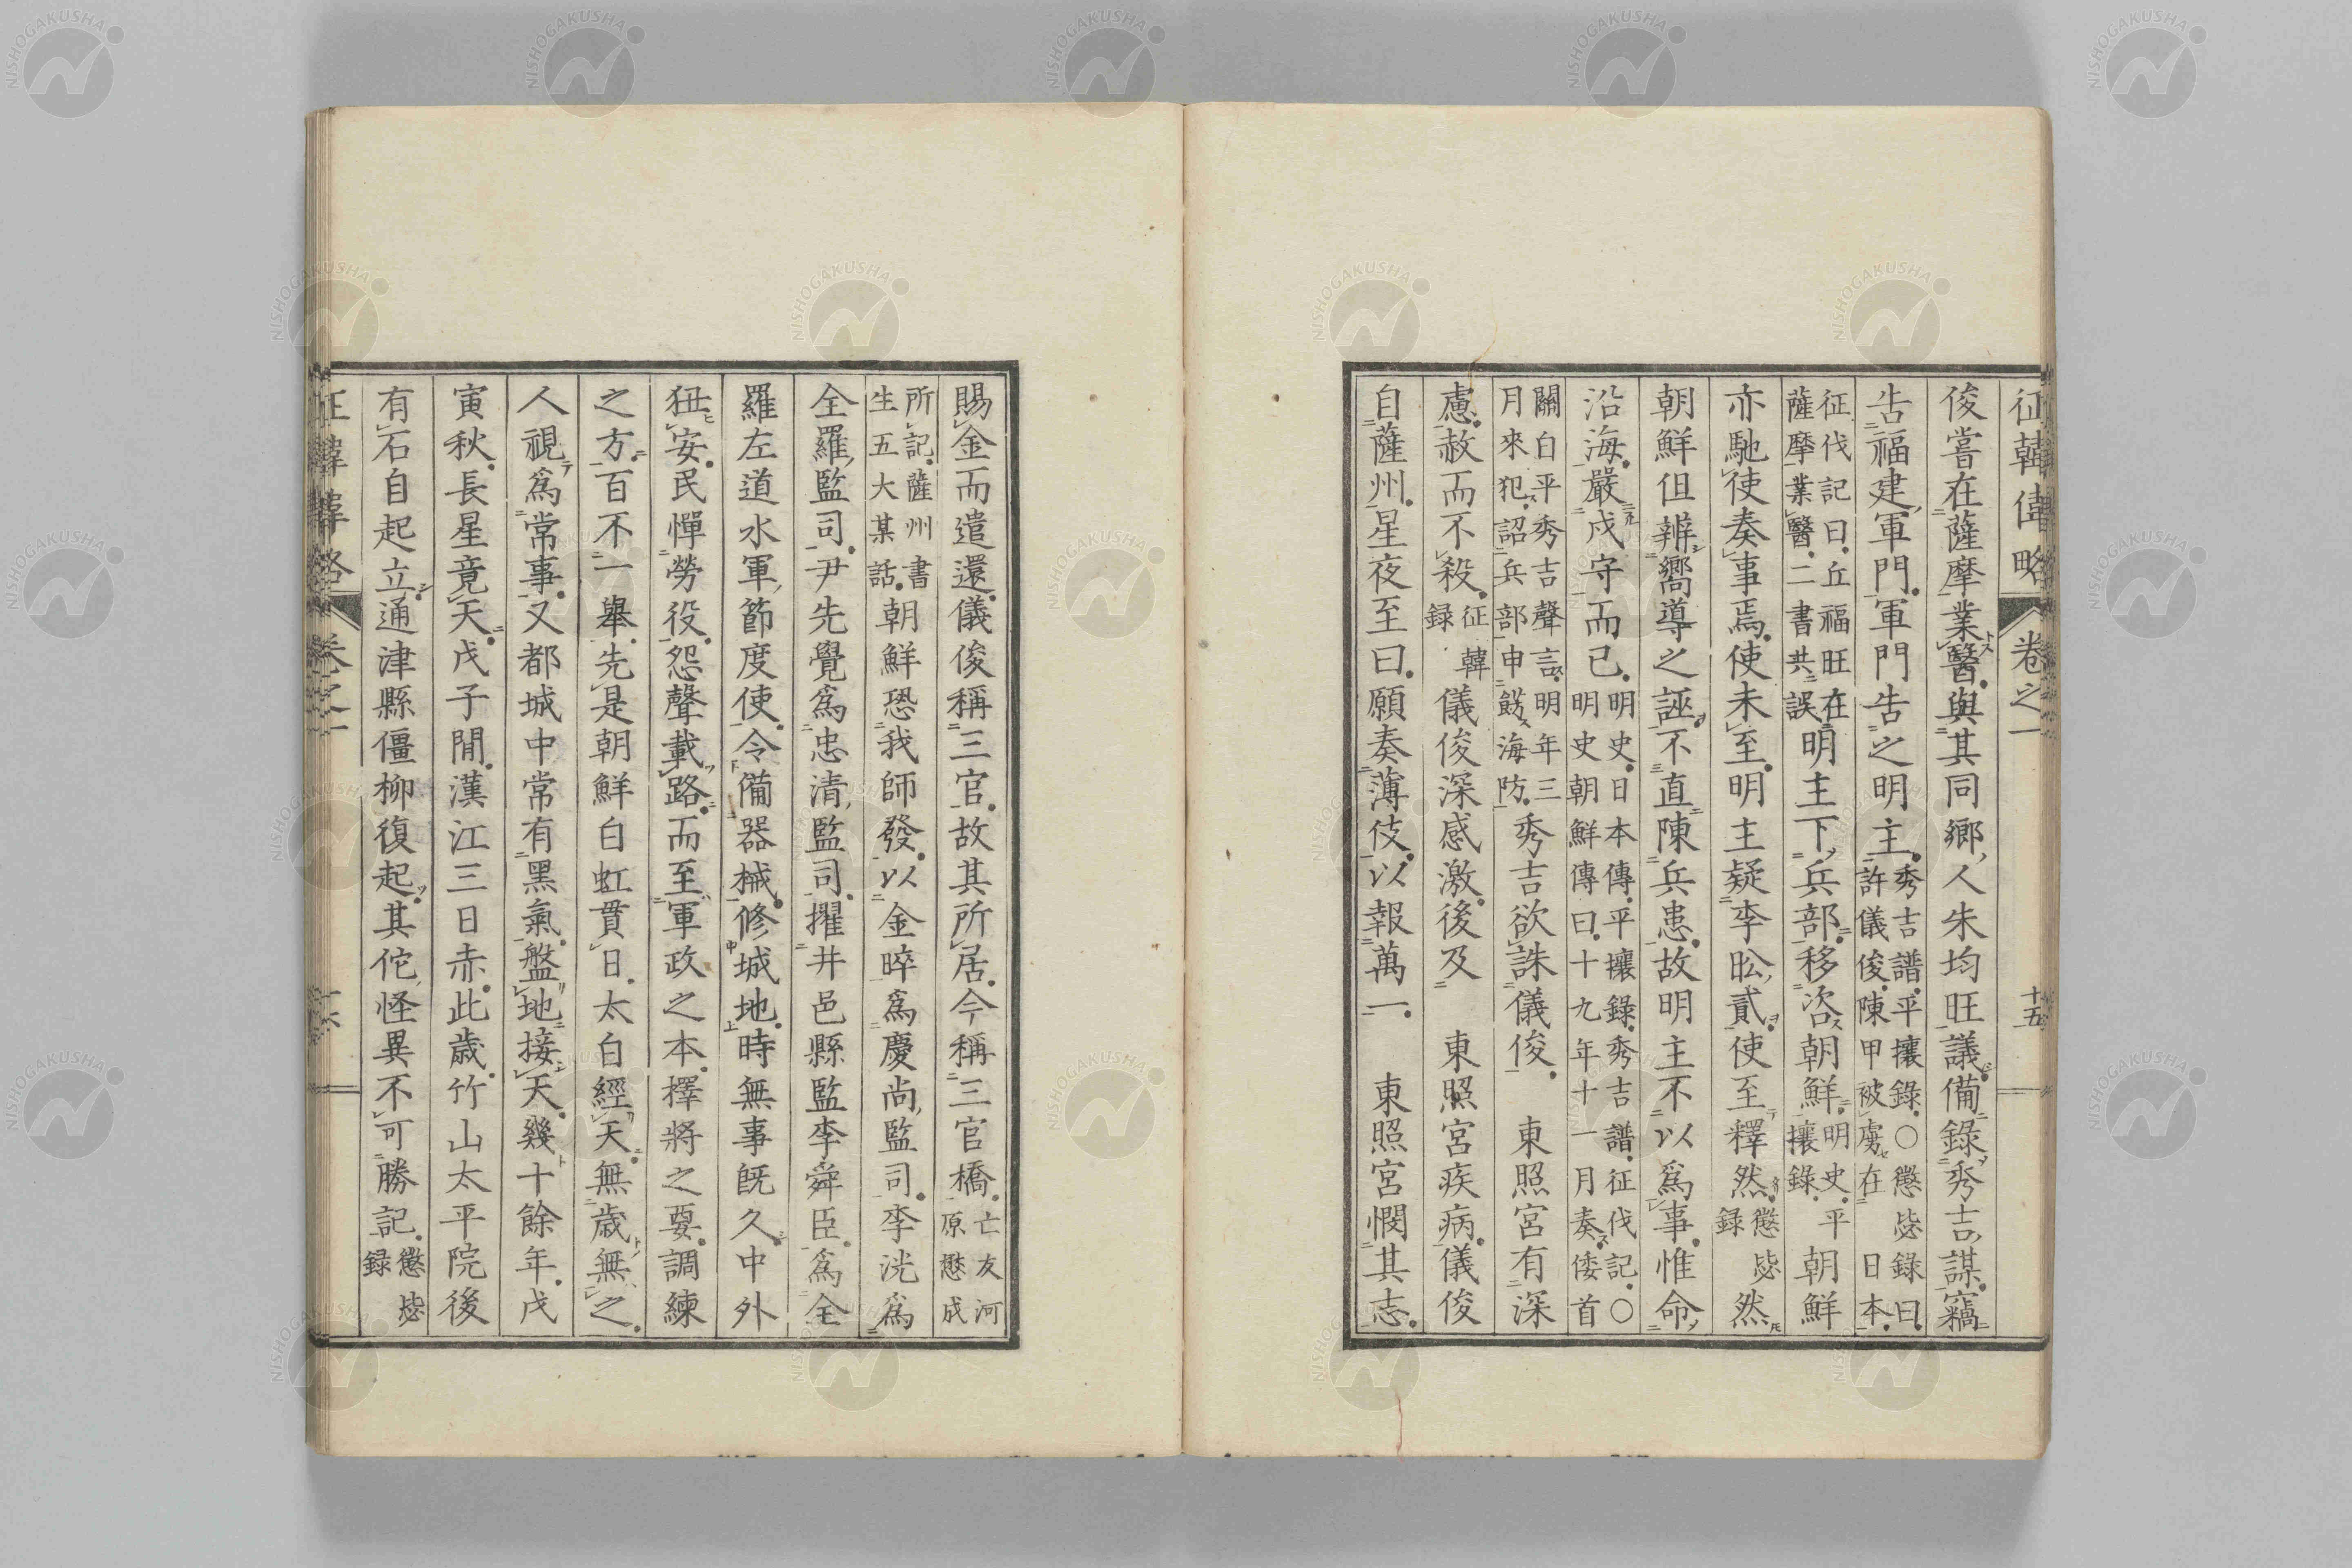 征韓偉略 卷之一 十五
俊嘗在薩摩業醫與其同鄉人朱均旺議備錄秀吉謀竊
告福建軍門軍門告之明主秀吉譜平攘錄○懲毖錄曰許儀俊陳甲被虜在日本
征伐記曰丘福旺在薩摩業醫二書共誤明主下兵部移咨朝鮮明史平攘錄朝鮮
亦馳使奏事焉使未至明主疑李昖貳使至釋然懲毖錄然
朝鮮但辨嚮導之誣不直陳兵患故明主不以爲事惟命
沿海嚴戍守而已明史日本傳平攘錄秀吉譜征伐記○明史朝鮮傳曰十九年十一月奏倭首
關白平秀吉聲言明年三月來犯詔兵部申飭海防秀吉欲誅儀俊 東照宮有深
慮赦而不殺征韓錄儀俊深感激後及 東照宮疾病儀俊
自薩州星夜至曰願奏薄伎以報萬一 東照宮憫其志
賜金而遣還儀俊稱三官故其所居今稱三官橋亡友河原愨成
所記薩州書生五大某話朝鮮恐我師發以金晬爲慶尚監司李洸爲
全羅監司尹先覺爲忠清監司擢井邑縣監李舜臣爲全
羅左道水軍節度使令備器械修城地時無事旣久中外
狃安民憚勞役怨聲載路而至軍政之本擇將之要調練
之方百不一舉先是朝鮮白虹貫日太白經天無歲無之
人視爲常事又都城中常有黑氣盤地接天幾十餘年戊
寅秋長星竟天戊子閒漢江三日赤此歲竹山太平院後
有石自起立通津縣僵柳復起其佗怪異不可勝記懲毖錄
卷之一